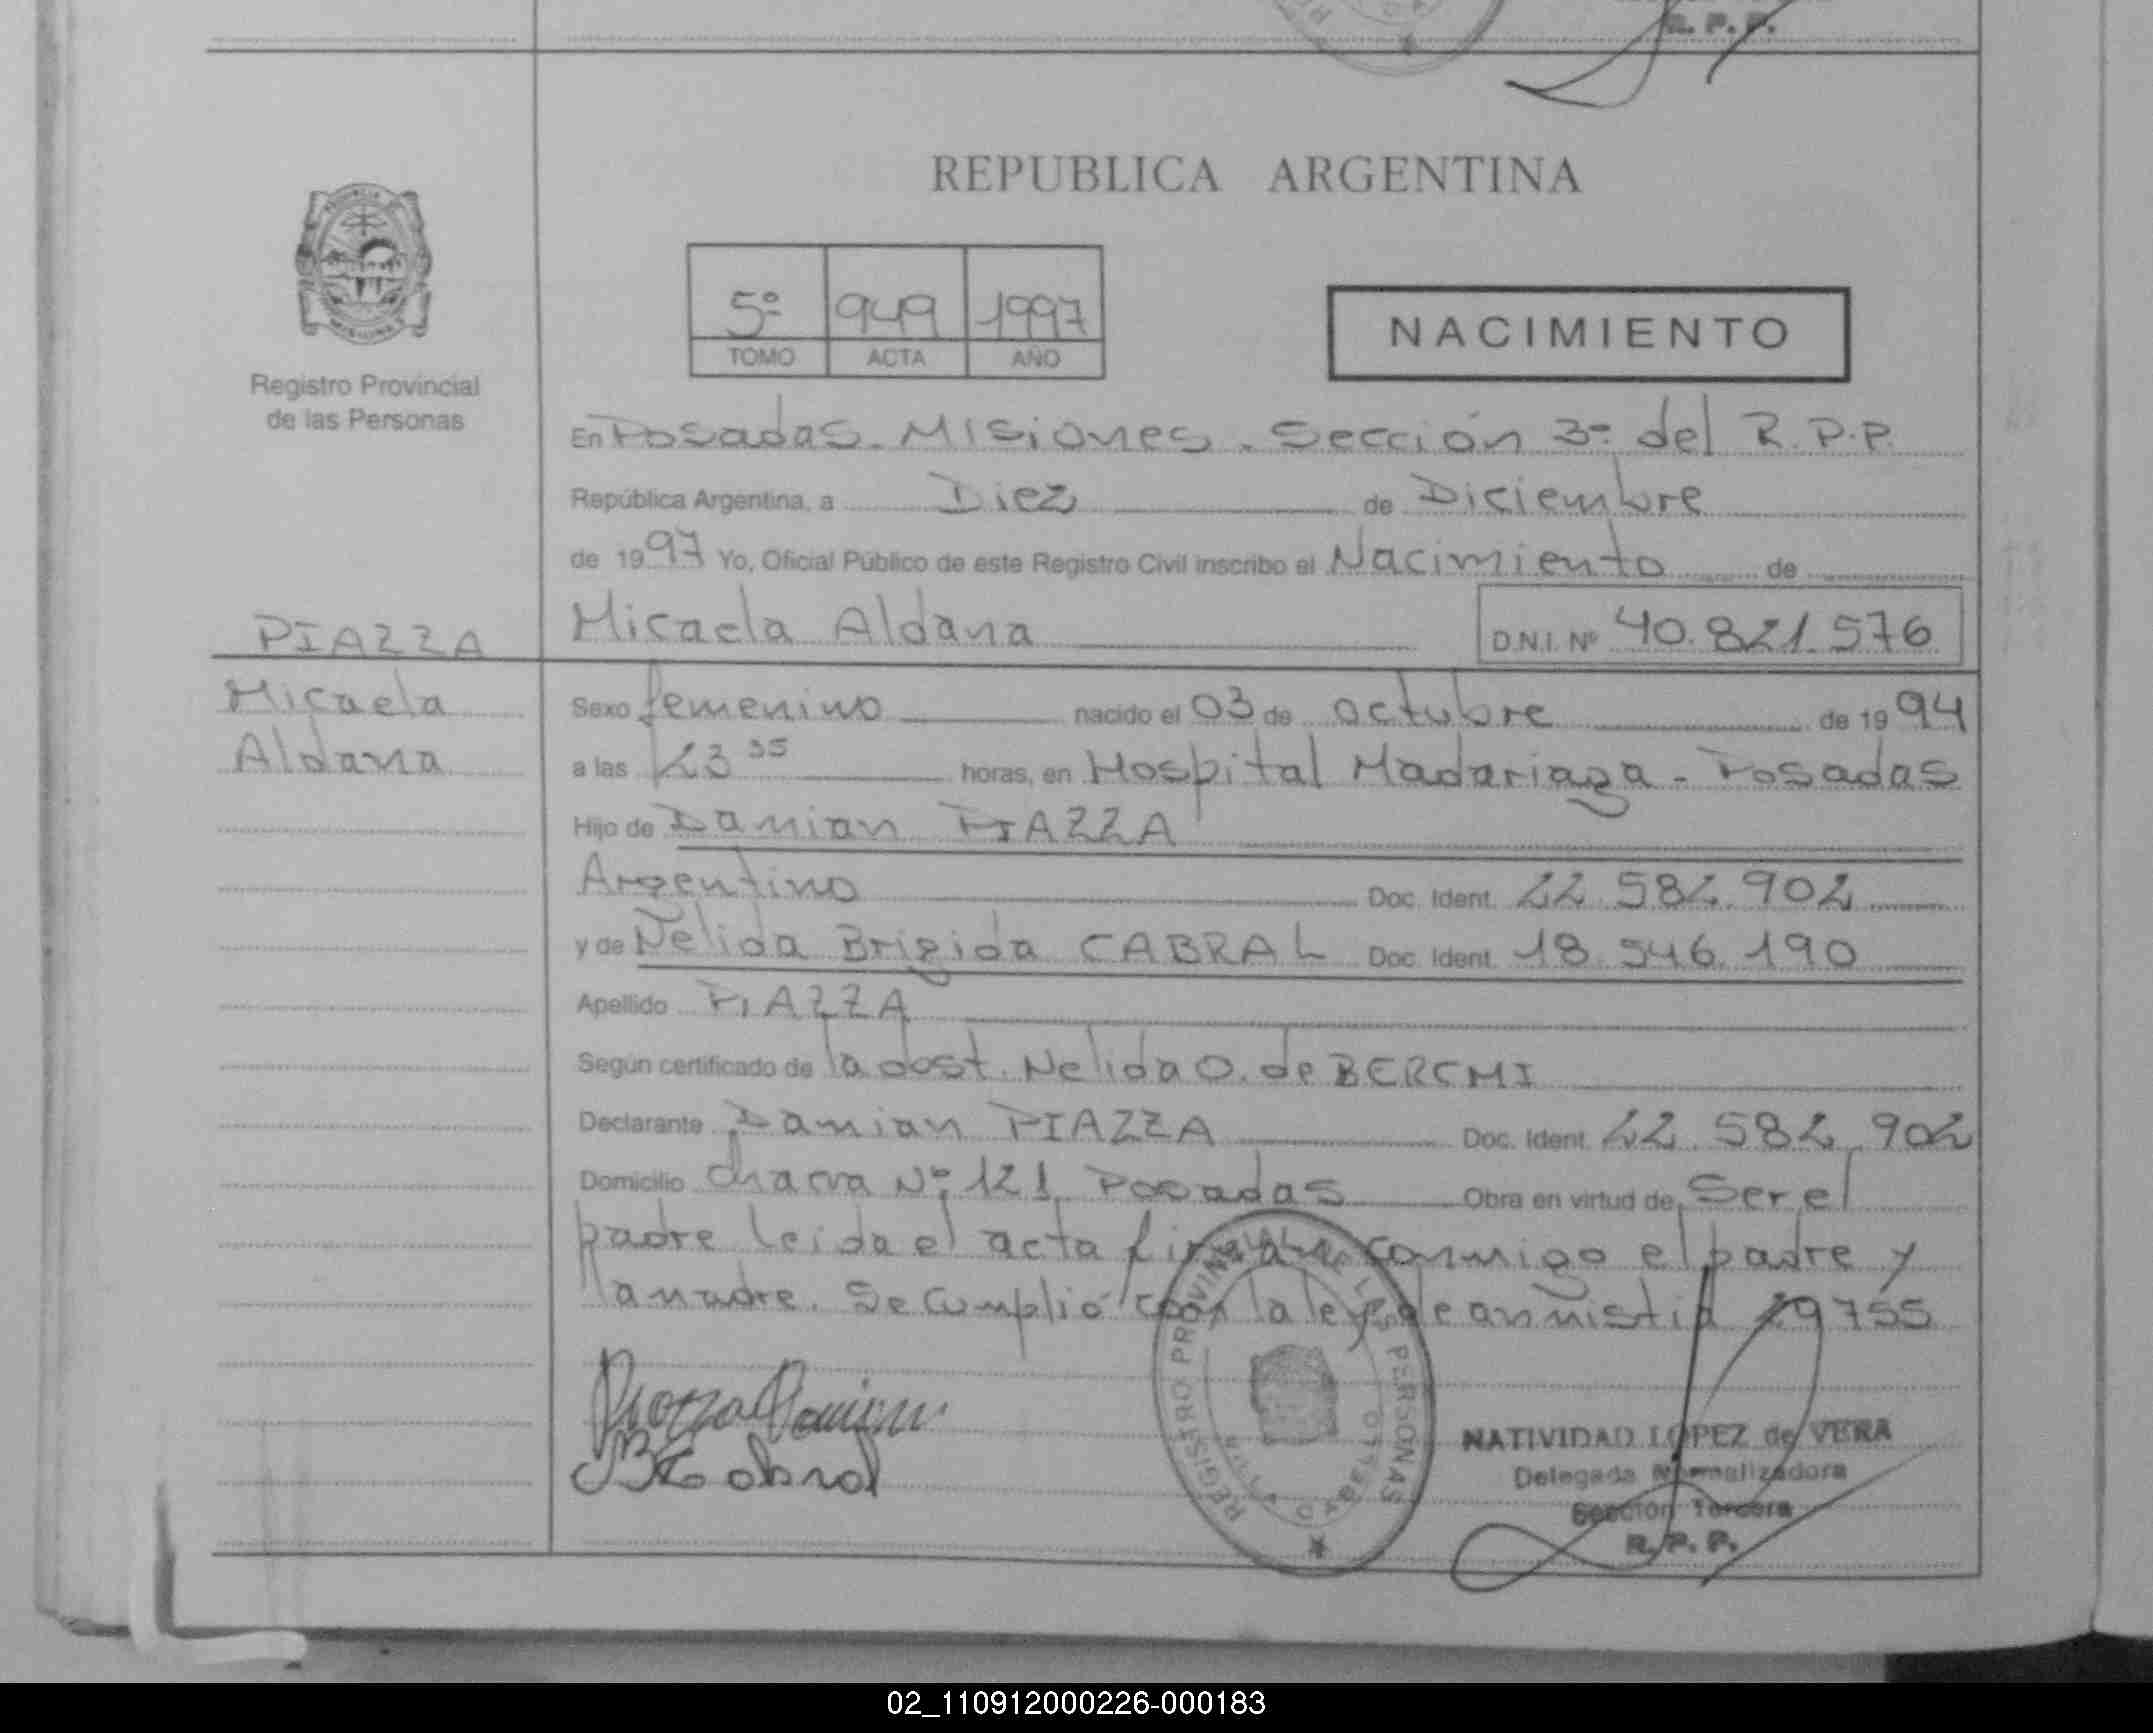 R. P. P.
REPUBLICA ARGENTINA
5º 949 1997
TOMO ACTA AÑO
NACIMIENTO
Registro Provincial
de las Personas
En Posadas - Misiones - Sección 3º del R.P.P.
República Argentina, a Diez de Diciembre
de 1997 Yo, Oficial Público de este Registro Civil inscribo el Nacimiento de
PIAZZA
Micaela Aldana D.N.I. Nº 40.821.576
Micaela
Aldana
Sexo femenino nacido el 03 de octubre de 1994
a las 23 35 horas, en Hospital Madariaga - Posadas
Hijo de Damian PIAZZA
Argentino Doc. Ident. 22.582.902
y de Nelida Brigida CABRAL Doc. Ident. 18.546.190
Apellido PIAZZA
Según certificado de la obst. Nelida O. de
Declarante Damian PIAZZA Doc. Ident. 22.582.902
Domicilio chacra Nº 121 Posadas Obra en virtud de Ser el
padre leida el acta firman conmigo el padre y
la madre. Se cumplió con la ley de amnistia 9755
Piazza Damian
B Cabral
REGISTRO PROVINCIAL DE LAS PERSONAS
NATIVIDAD LOPEZ de VERA
Delegada Normalizadora
Sección Tercera
R. P. P.
02_110912000226-000183